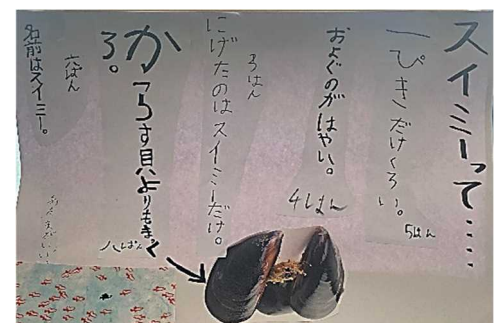 スイミーって・・・・・
一ぴきだけくろい。
5はん
およぐのがはやい。
4はん
ろはん
にげたのはスイミーだけ。
からす貝よりもまっくろ。
八ぱん
六ぱん
名前はスイミー。